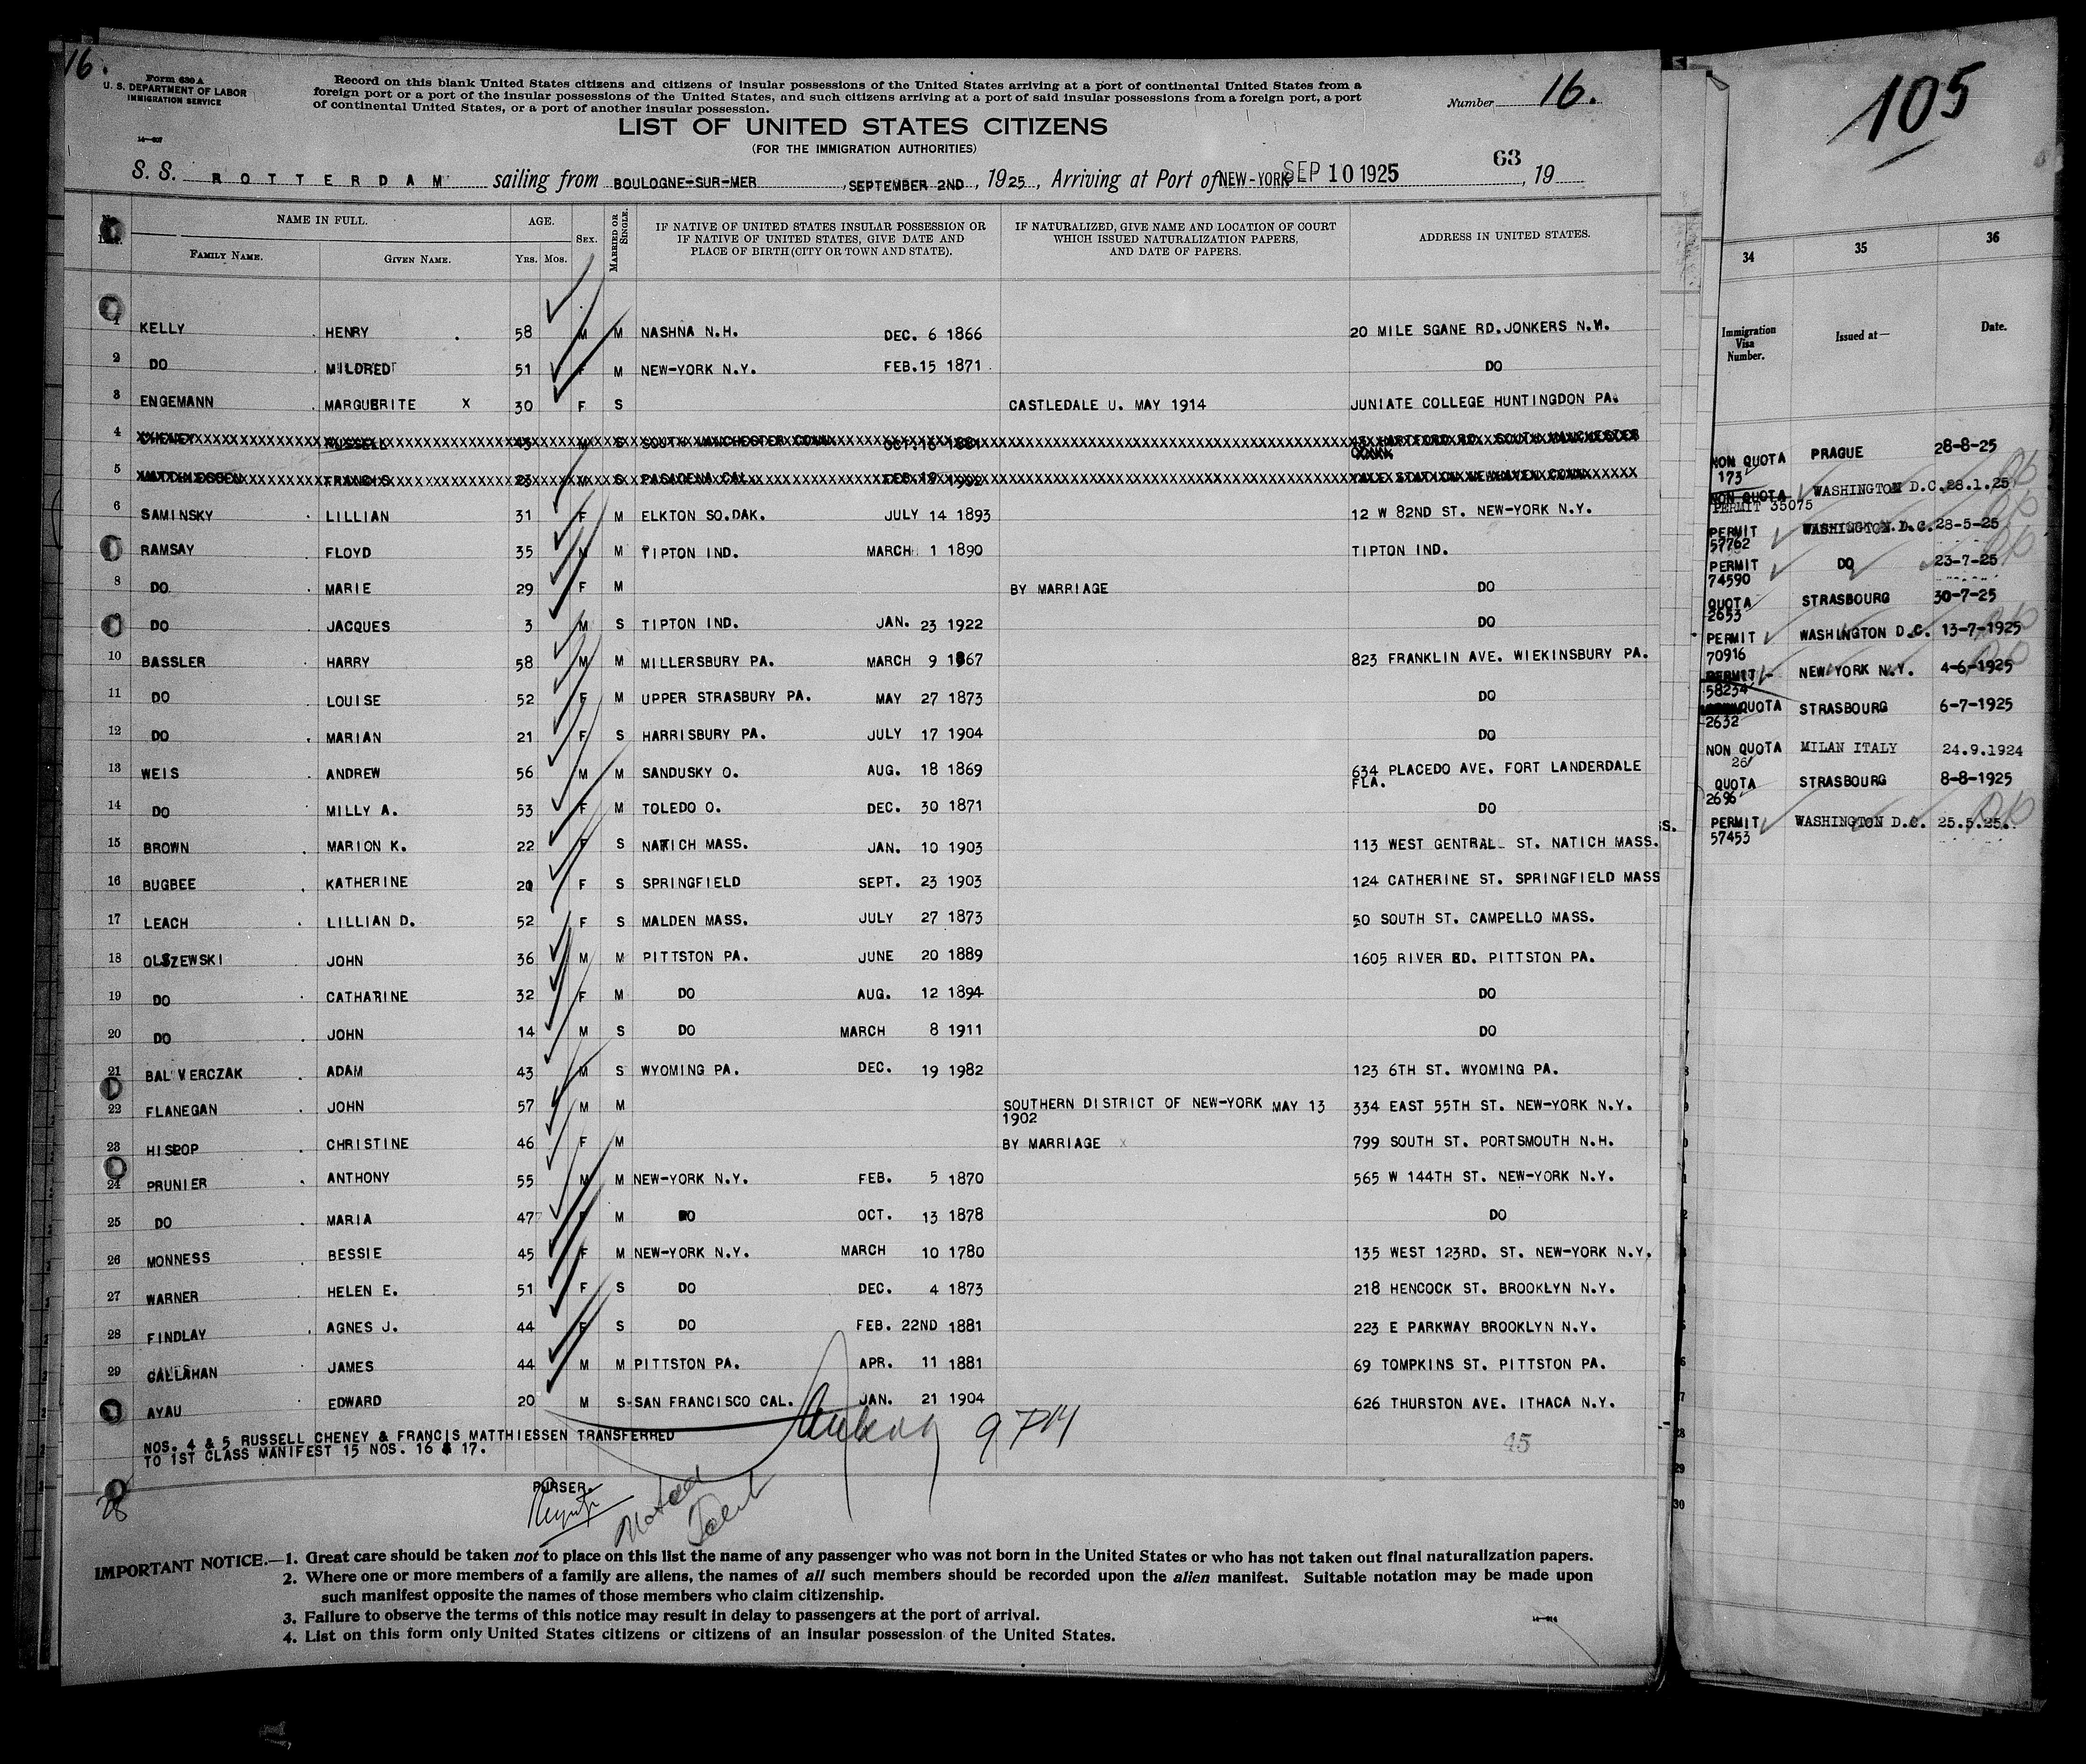 16.
Form 630 A
U. S. DEPARTMENT OF LABOR
IMMIGRATION SERVICE
Record on this blank United States citizens and citizens of insular possessions of the United States arriving at a port of continental United States from a
foreign port or a port of the insular possessions of the United States, and such citizens arriving at a port of said insular possessions from a foreign port, a port
of continental United States, or a port of another insular possession.
Number 16.
LIST OF UNITED STATES CITIZENS
(FOR THE IMMIGRATION AUTHORITIES)
63
S. S. ROTTERDAM sailing from BOULOGNE-SUR-MER, SEPTEMBER 2ND, 1925, Arriving at Port of NEW-YORK SEP 10 1925, 19
NAME IN FULL. AGE. SEX. MARRIED OR SINGLE. IF NATIVE OF UNITED STATES INSULAR POSSESSION OR IF NATIVE OF UNITED STATES, GIVE DATE AND PLACE OF BIRTH (CITY OR TOWN AND STATE). IF NATURALIZED, GIVE NAME AND LOCATION OF COURT WHICH ISSUED NATURALIZATION PAPERS, AND DATE OF PAPERS. ADDRESS IN UNITED STATES.
FAMILY NAME. GIVEN NAME. Yrs. Mos.
1 KELLY HENRY 58 M M NASHNA N.H. DEC. 6 1866 20 MILE SGANE RD. JONKERS N.Y.
2 DO MILDRED 51 F M NEW-YORK N.Y. FEB. 15 1871 DO
3 ENGEMANN MARGUERITE X 30 F S CASTLEDALE U. MAY 1914 JUNIATE COLLEGE HUNTINGDON PA.
4 CHENEY RUSSELL 43 M S SOUTH MANCHESTER CONN. OCT. 16 1881 HARTFORD RD. SOUTH MANCHESTER
CONN.
5 MATTHIESSEN FRANCIS 23 M S PASADENA CAL. FEB. 19 1902 YALE STATION NEWHAVEN CONN.
6 SAMINSKY LILLIAN 31 F M ELKTON SO.DAK. JULY 14 1893 12 W 82ND ST. NEW-YORK N.Y.
7 RAMSAY FLOYD 35 M M TIPTON IND. MARCH 1 1890 TIPTON IND.
8 DO MARIE 29 F M BY MARRIAGE DO
9 DO JACQUES 3 M S TIPTON IND. JAN. 23 1922 DO
10 BASSLER HARRY 58 M M MILLERSBURY PA. MARCH 9 1867 823 FRANKLIN AVE. WIEKINSBURY PA.
11 DO LOUISE 52 F M UPPER STRASBURY PA. MAY 27 1873 DO
12 DO MARIAN 21 F S HARRISBURY PA. JULY 17 1904 DO
13 WEIS ANDREW 56 M M SANDUSKY O. AUG. 18 1869 634 PLACEDO AVE. FORT LANDERDALE
FLA.
14 DO MILLY A. 53 F M TOLEDO O. DEC. 30 1871 DO
15 BROWN MARION K. 22 F S NATICH MASS. JAN. 10 1903 113 WEST GENTRAL ST. NATICH MASS.
16 BUGBEE KATHERINE 21 F S SPRINGFIELD SEPT. 23 1903 124 CATHERINE ST. SPRINGFIELD MASS
17 LEACH LILLIAN D. 52 F S MALDEN MASS. JULY 27 1873 50 SOUTH ST. CAMPELLO MASS.
18 OLSZEWSKI JOHN 36 M M PITTSTON PA. JUNE 20 1889 1605 RIVER RD. PITTSTON PA.
19 DO CATHARINE 32 F M DO AUG. 12 1894 DO
20 DO JOHN 14 M S DO MARCH 8 1911 DO
21 BALWERCZAK ADAM 43 M S WYOMING PA. DEC. 19 1982 123 6TH ST. WYOMING PA.
22 FLANEGAN JOHN 57 M M SOUTHERN DISTRICT OF NEW-YORK MAY 13 334 EAST 55TH ST. NEW-YORK N.Y.
1902
23 HISLOP CHRISTINE 46 F M BY MARRIAGE X 799 SOUTH ST. PORTSMOUTH N.H.
24 PRUNIER ANTHONY 55 M M NEW-YORK N.Y. FEB. 5 1870 565 W 144TH ST. NEW-YORK N.Y.
25 DO MARIA 47 F M DO OCT. 13 1878 DO
26 MONNESS BESSIE 45 F M NEW-YORK N.Y. MARCH 10 1780 135 WEST 123RD. ST. NEW-YORK N.Y.
27 WARNER HELEN E. 51 F S DO DEC. 4 1873 218 HENCOCK ST. BROOKLYN N.Y.
28 FINDLAY AGNES J. 44 F S DO FEB. 22ND 1881 223 E PARKWAY BROOKLYN N.Y.
29 CALLAHAN JAMES 44 M M PITTSTON PA. APR. 11 1881 69 TOMPKINS ST. PITTSTON PA.
AYAU EDWARD 20 M S-SAN FRANCISCO CAL. JAN. 21 1904 626 THURSTON AVE. ITHACA N.Y.
NOS. 4 & 5 RUSSELL CHENEY & FRANCIS MATTHIESSEN TRANSFERRED
TO 1ST CLASS MANIFEST 15 NOS. 16 & 17.
9 PM
45
PURSER.
28
IMPORTANT NOTICE.—1. Great care should be taken not to place on this list the name of any passenger who was not born in the United States or who has not taken out final naturalization papers.
2. Where one or more members of a family are aliens, the names of all such members should be recorded upon the alien manifest. Suitable notation may be made upon
such manifest opposite the names of those members who claim citizenship.
3. Failure to observe the terms of this notice may result in delay to passengers at the port of arrival.
4. List on this form only United States citizens or citizens of an insular possession of the United States.
105
34 35 36
Immigration Visa Number. Issued at— Date.
NON QUOTA PRAGUE 28-8-25
173
NON QUOTA WASHINGTON D.C. 28.1.25
PERMIT 35075
PERMIT WASHINGTON.D.C. 28-5-25
57762
PERMIT DO 23-7-25
74590
QUOTA STRASBOURG 30-7-25
2653
PERMIT WASHINGTON D.C. 13-7-1925
70916
PERMIT NEW-YORK N.Y. 4-6-1925
58234
QUOTA STRASBOURG 6-7-1925
2632
NON QUOTA MILAN ITALY 24.9.1924
26
QUOTA STRASBOURG 8-8-1925
2696
PERMIT WASHINGTON D.C. 25.5.25.
57453